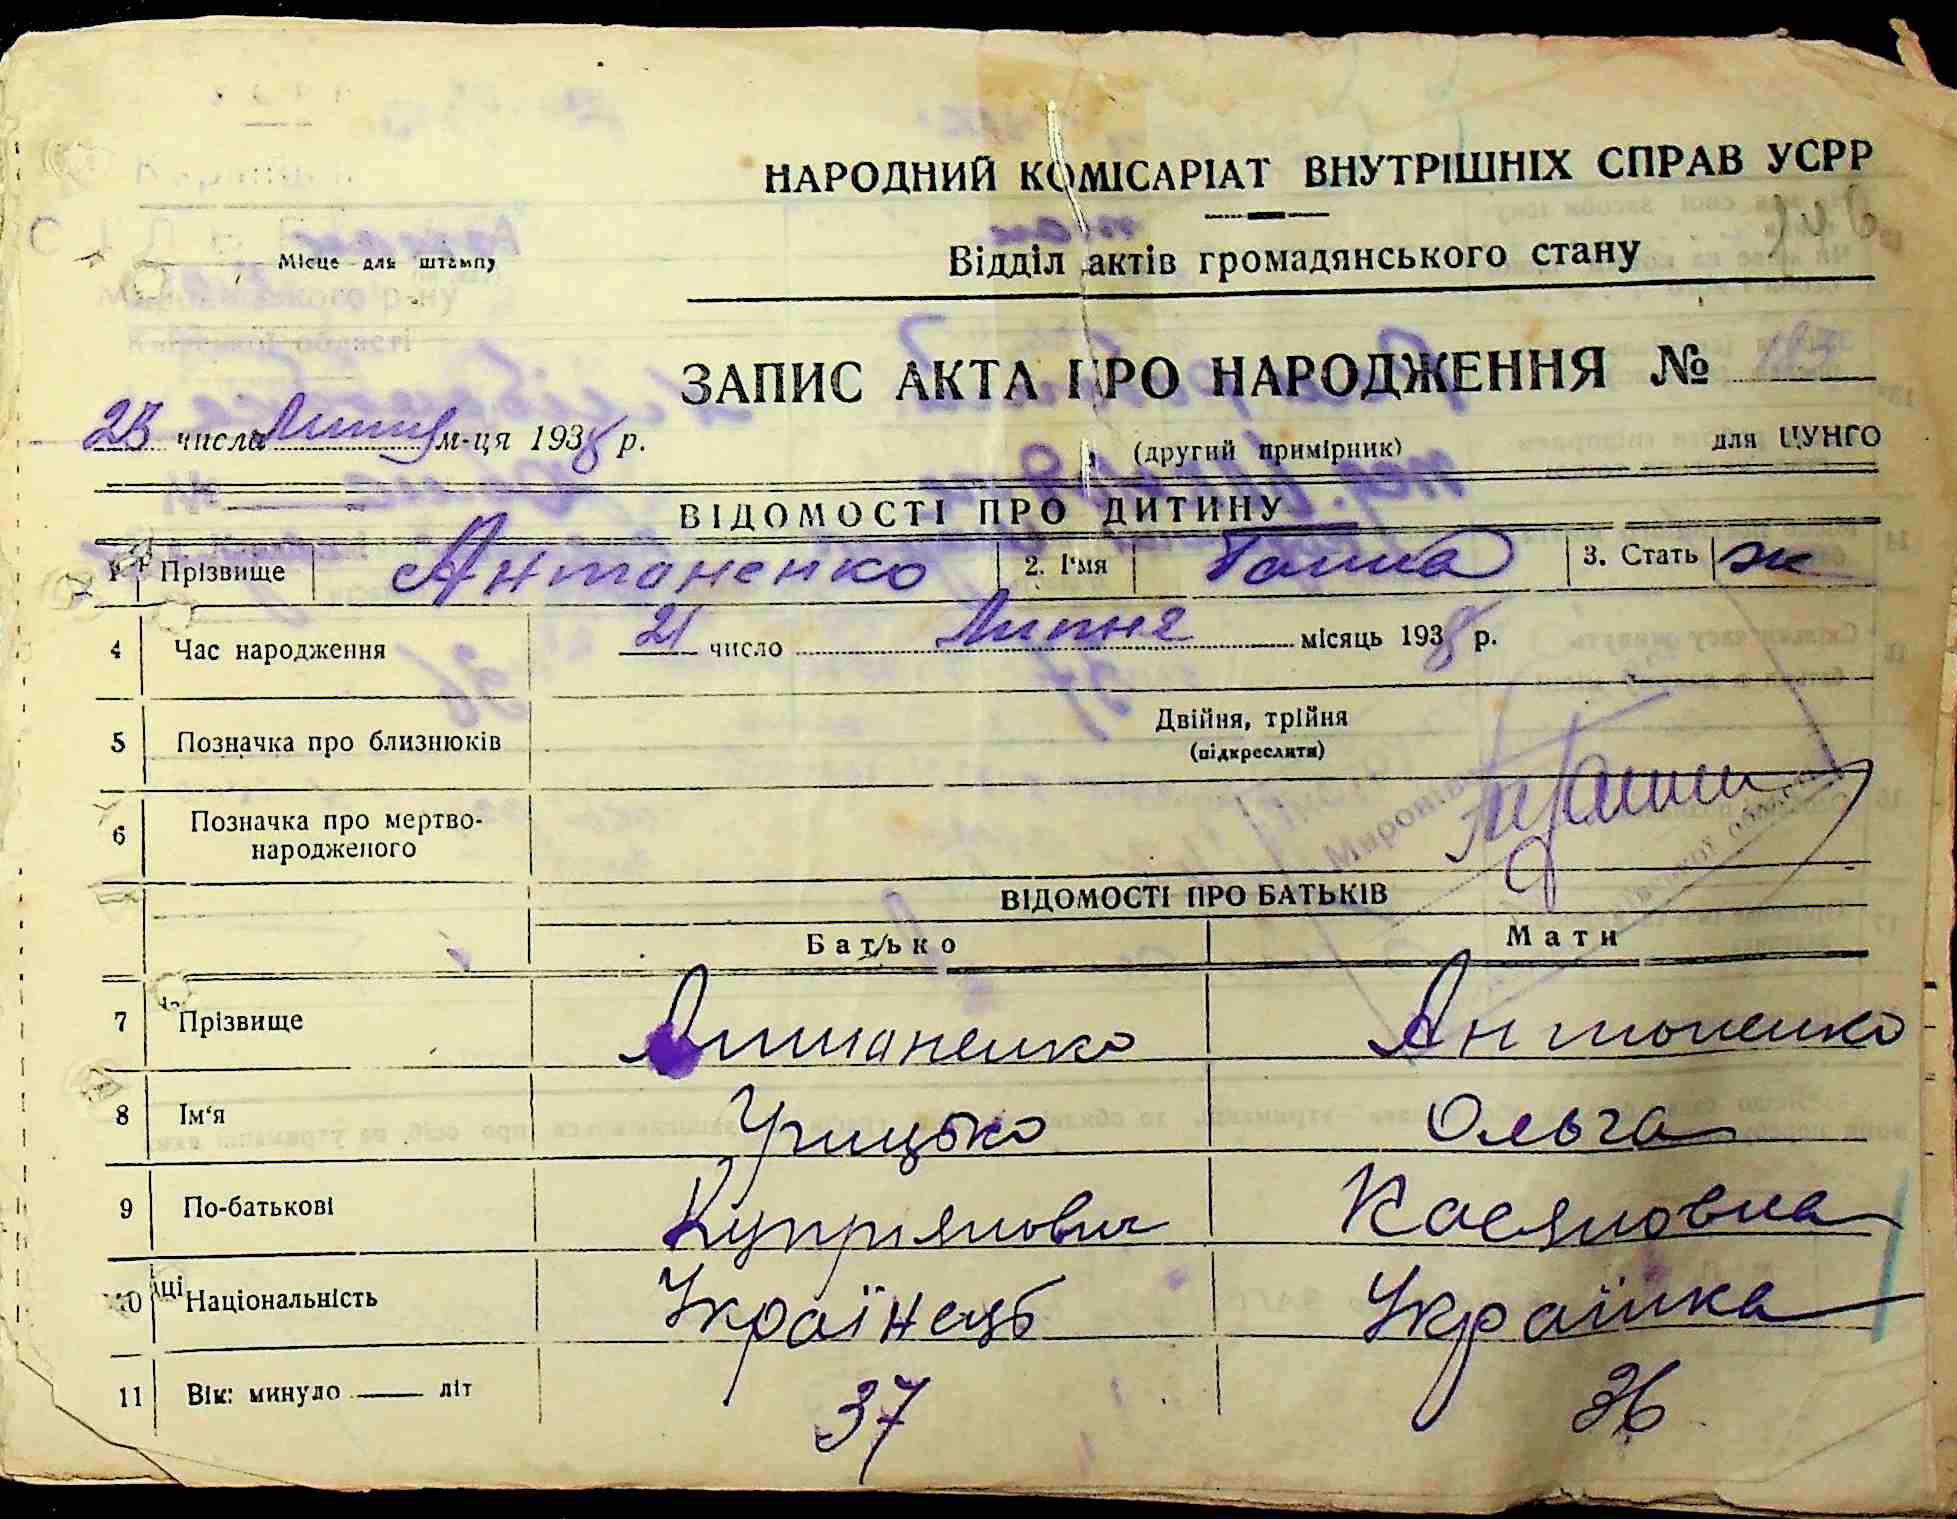 НАРОДНИЙ КОМІСАРІАТ ВНУТРІШНІХ СПРАВ УСРР
Відділ актів громадянського стану
Місце для штампу
Київської області
ЗАПИС АКТА ПРО НАРОДЖЕННЯ №
23 числа Липня м-ця 1938 р.
(другий примірник)
для ЦУНГО
ВІДОМОСТІ ПРО ДИТИНУ
1 Прізвище Антаненко 2. І'мя Галина 3. Стать ж
4 Час народження 21 число Липня місяць 1938 р.
5 Позначка про близнюків Двійня, трійня
(підкреслити)
6 Позначка про мертво-
народженого
ВІДОМОСТІ ПРО БАТЬКІВ
Батько Мати
7 Прізвище Антаненко Антоненко
8 Ім'я Грицько Ольга
9 По-батькові Купріянович Касяновна
10 Національність Українець Українка
11 Вік: минуло літ 37 36